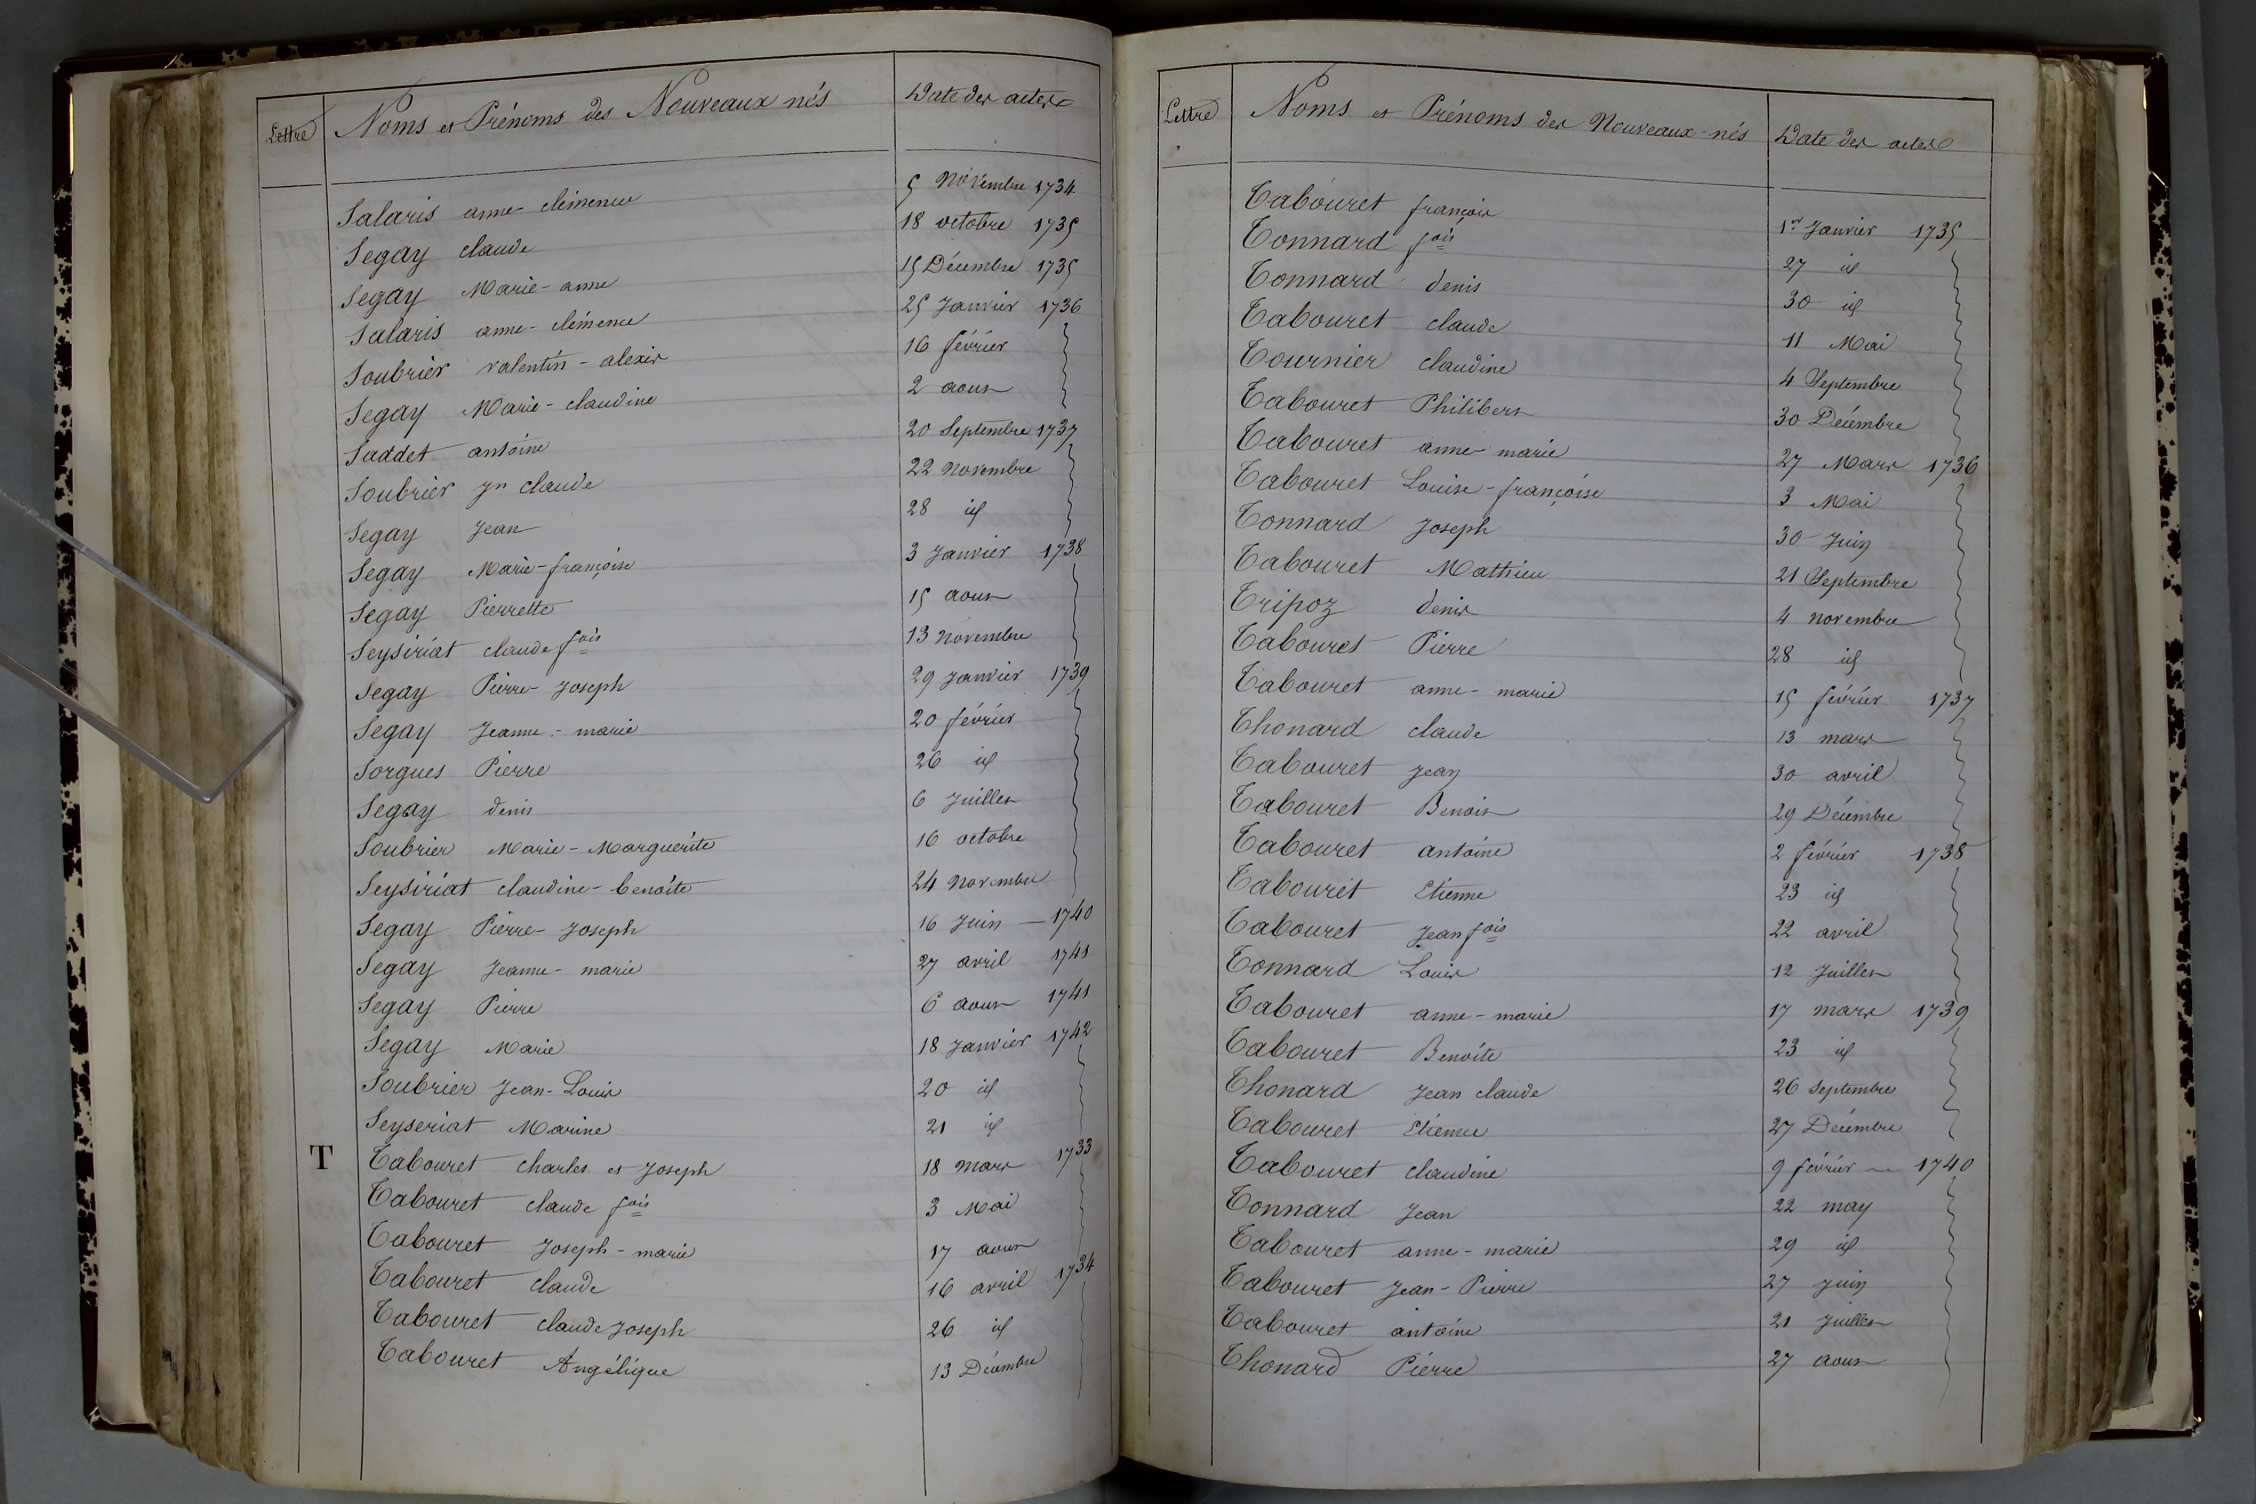 Lettre Noms et Prénoms des Nouveaux nés Date des actes
Salaris anne-clémence 5 Novembre 1734
Segay claude 18 octobre 1735
Segay Marie-anne 15 Décembre 1735
Salaris anne-clémence 25 Janvier 1736
Soubrier valentin-alexis 16 février
Segay Marie-claudine 2 aout
Saddet antoine 20 Septembre 1737
Soubrier Jn claude 22 Novembre
Segay Jean 28 id
Segay Marie-françoise 3 Janvier 1738
Segay Pierrette 15 aout
Seysiriat claude fois 13 Novembre
Segay Pierre-Joseph 29 Janvier 1739
Segay Jeanne-marie 20 février
Sorgues Pierre 26 id
Segay denis 6 Juillet
Soubrier Marie-Marguerite 16 octobre
Seysiriat claudine-benoite 24 Novembre
Segay Pierre-Joseph 16 Juin — 1740
Segay Jeanne-marie 27 avril 1741
Segay Pierre 6 aout 1741
Segay Marie 18 Janvier 1742
Soubrier Jean-Louis 20 id
Seyseriat Marine 21 id
T Tabouret charles et Joseph 18 Mars 1733
Tabouret claude fois 3 Mai
Tabouret Joseph-marie 17 aout
Tabouret claude 16 avril 1734
Tabouret claude Joseph 26 id
Tabouret Angélique 13 Décembre
Lettre Noms et Prénoms des Nouveaux-nés Date des actes
Tabouret françois 1er Janvier 1735
Tonnard fois 27 id
Tonnard denis 30 id
Tabouret claude 11 Mai
Tournier claudine 4 Septembre
Tabouret Philibert 30 Décembre
Tabouret anne-marie 27 Mars 1736
Tabouret Louise-françoise 3 Mai
Tonnard Joseph 30 Juin
Tabouret Mathieu 21 Septembre
Tripoz denis 4 novembre
Tabouret Pierre 28 id
Tabouret anne-marie 15 février 1737
Thonard claude 13 mars
Tabouret Jean 30 avril
Tabouret Benoit 29 Décembre
Tabouret antoine 2 février 1738
Tabouret Etienne 23 id
Tabouret Jean fois 22 avril
Tonnard Louis 12 Juillet
Tabouret anne-marie 17 mars 1739
Tabouret Benoite 23 id
Thonard Jean claude 26 Septembre
Tabouret Etienne 27 Décembre
Tabouret claudine 9 février — 1740
Tonnard Jean 22 may
Tabouret anne-marie 29 id
Tabouret Jean-Pierre 27 juin
Tabouret antoine 21 Juillet
Thonard Pierre 27 aout